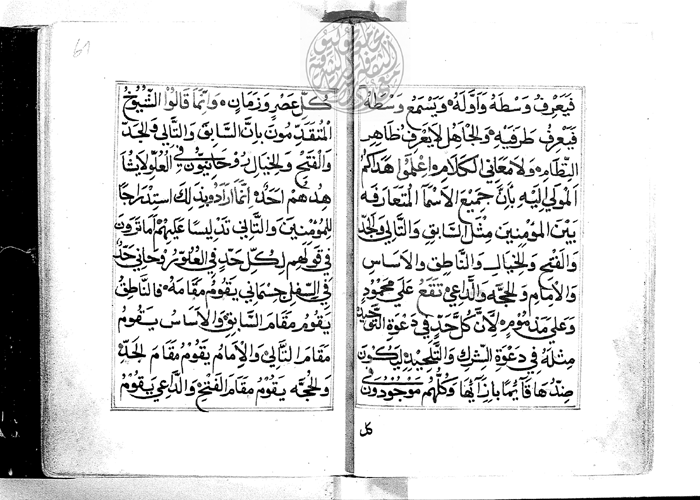 فَيَعْرِفُ وَسْطَهُ وَأَوَّلَهُ وَيَسْمَعُ وَسْطَهُ
فَيَعْرِفُ طَرَفَيْهِ وَالْجَاهِلُ لَا يَعْرِفُ ظَاهِرَ
النِّظَامِ وَلَا مَعَانِي الْكَلَامِ اِعْلَمُوا هَدَاكُمُ
الْمَوْلَى إِلَيْهِ بِأَنَّ جَمِيعَ الْأَسْمَا الْمُتَعَارَفَه
بَيْنَ الْمُؤْمِنِينَ مِثْلَ السَّابِقِ وَالتَّالِي وَالْجَدِّ
وَالْفَتْحِ وَالْخَيَالِ وَالنَّاطِقِ وَالْأَسَاسِ
وَالْإِمَامِ وَالْحُجَّه وَالدَّاعِي تَقَعُ عَلَى مَحْمُودٍ
وَعَلَى مَذْمُومٍ لِأَنَّ كُلَّ حَدٍّ فِي دَعْوَةِ التَّوْحِيدِ
مِثْلَهُ فِي دَعْوَةِ الشِّرْكِ وَالتَّلْحِيدِ لِيَكُونَ
ضِدُّهَا قَائِمًا بِإِزَائِهَا وَكُلُّهُمْ مَوْجُودُونَ فِي
كل
61
كُلِّ عَصْرٍ وَزَمَانٍ وَإِنَّمَا قَالُوا الشُّيُوخُ
الْمُتَقَدِّمُونَ بِانَّ السَّابِقَ وَالتَّالِي وَالْجَدَّ
وَالْفَتْحَ وَالْخَيَالَ رُوحَانِيُّونَ فِي الْعُلُوِّ لَا يُشَا
هِدُهُمْ اَحَدٌ إِنَّمَا أَرَادُو بِذَلِكَ اسْتِدْرَاجًا
لِلْمُؤْمِنِينَ وَالتَّانِي تَدْلِيسًا عَلَيْهِمْ أَمَا تَرَوْنَ
فِي قَوْلِهِمْ لِكُلِّ حَدٍّ فِي الْعُلُوِّ رُوحَانِي حَدٌّ
فِي السِّفْلِ جِسْمَانِي يَقُومُ مَقَامَهُ فَالنَّاطِقُ
يَقُومُ مَقَامَ السَّابِقِ وَالْأَسَاسُ يَقُومُ
مَقَامَ التَّالِي وَالْإِمَامُ يَقُومُ مَقَامَ الْجَدِّ
وَالْحُجَّه يَقُومُ مَقَامَ الْفَتْحِ وَالدَّاعِي يَقُومُ